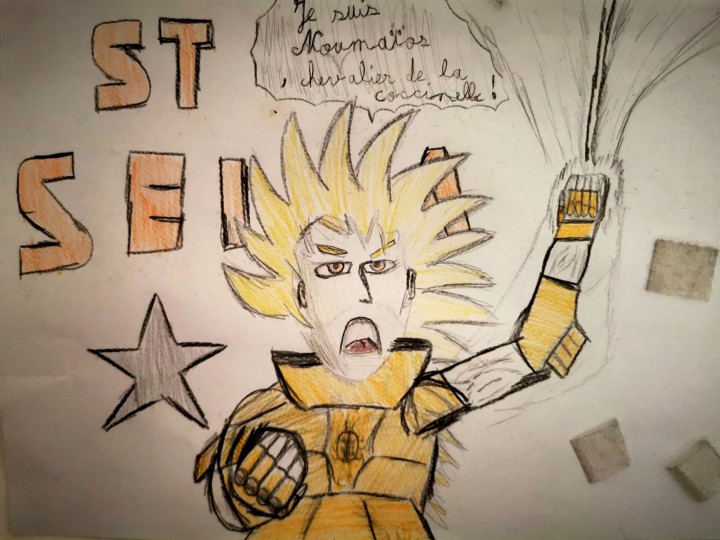 ST
SEI A
Je suis
Noumaïos
, chevalier de la
coccinelle !